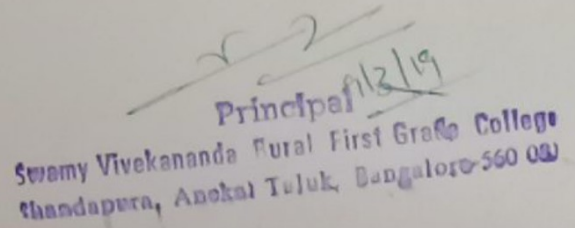 Principal
Swamy Vivekananda Rural First Grade College
Chandapura, Anekal Taluk, Bangalore-560